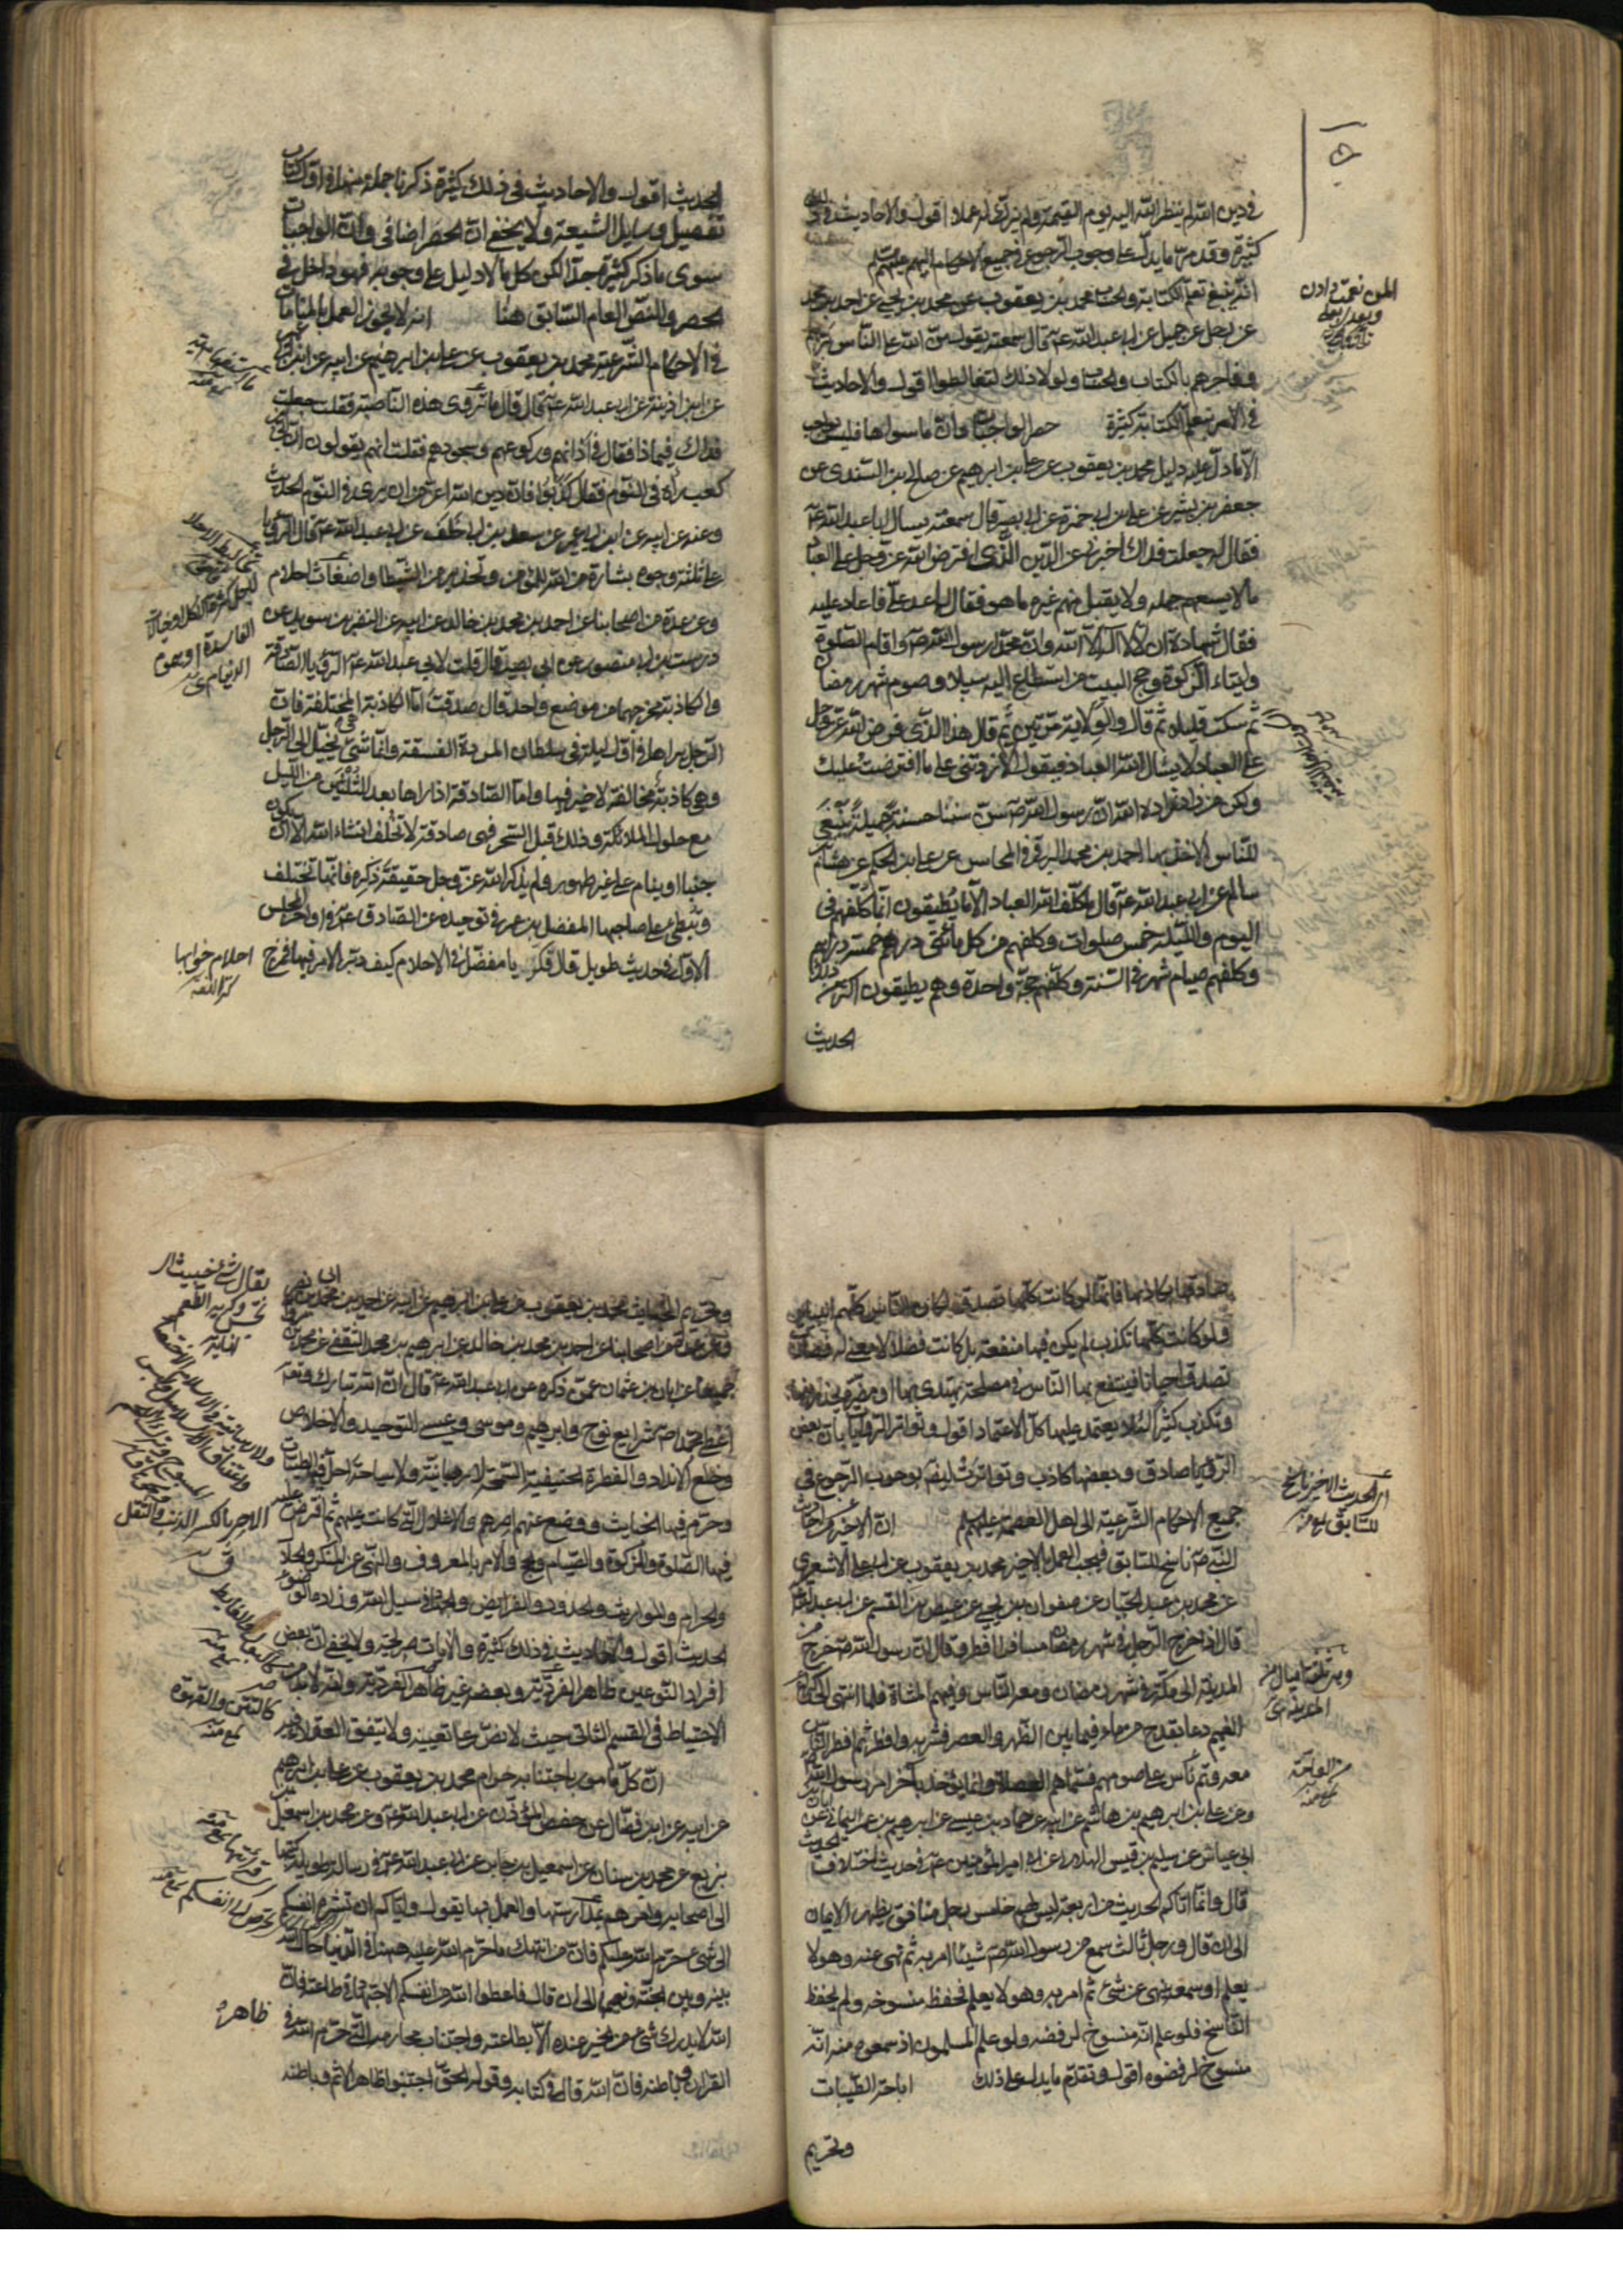 في دين الله لم ينظر الله اليه يوم القيمة ولم يزك له عملا اقول والاحاديث في ذلك
كثيرة وقد مر ما يدل على وجوب الرجوع في جميع الاحكام اليهم عليهم السلم
انه ينبغي تعلم الكتابة والحساب محمد بن يعقوب عن محمد بن يحيى عن احمد بن محمد
عن رجل عن جميل عن ابي عبدالله ع قال سمعته يقول من الله على الناس برهم
وفاجرهم بالكتاب والحساب ولولا ذلك لتغالطوا اقول والاحاديث
في الامر بتعلم الكتابة كثيرة حصر الواجبات وان ما سواها فليس بواجب
الا ما دل عليه دليل محمد بن يعقوب عن علي بن ابراهيم عن صالح بن السندي عن
جعفر بن بشير عن علي بن ابي حمزة عن ابي بصير قال سمعته يسال ابا عبدالله ع
فقال له جعلت فداك اخبرني عن الدين الذي افترض الله عز وجل على العباد
ما لا يسعهم جهله ولا يقبل منهم غيره ما هو فقال اعد علي فاعاد عليه
فقال شهادة ان لا اله الا الله وان محمدا رسول الله ص واقام الصلوة
وايتاء الزكوة وحج البيت من استطاع اليه سبيلا وصوم شهر رمضان
ثم سكت قليلا ثم قال والولاية مرتين ثم قال هذا الذي فرض الله عز وجل
على العباد لا يسال الله العباد فيقول الا زدتني على ما افترضت عليك
ولكن من زاد زاده الله ان رسول الله ص سن سننا حسنة جميلة ينبغي
للناس الاخذ بها احمد بن محمد البرقي في المحاسن عن علي بن الحكم عن هشام بن
سالم عن ابي عبدالله ع قال ما كلف الله العباد الا ما يطيقون انما كلفهم في
اليوم والليلة خمس صلوات وكلفهم من كل مأتي درهم خمسة دراهم
وكلفهم صيام شهر في السنة وكلفهم حجة واحدة وهم يطيقون اكثر من ذلك
الحديث
المن نعمت دادن
الحديث اقول والاحاديث في ذلك كثيرة ذكرنا جملة منها في اول كتاب
تفصيل وسايل الشيعة ولا يخفى ان الحصر اضافي وان الواجبات
سوى ما ذكر كثيرة جدا لكن كل ما لا دليل على وجوبه فهو داخل في
الحصر والنص العام السابق هنا انه لا يجوز العمل بالمنامات
في الاحكام الشرعية محمد بن يعقوب عن علي بن ابرهيم عن ابيه عن ابن ابي عمير
عن ابن اذينة عن ابي عبدالله ع قال قال ما تروى هذه الناصبة فقلت جعلت
فداك فيماذا فقال في اذانهم وركوعهم وسجودهم فقلت انهم يقولون ان ابي بن
كعب رأه في النوم فقال كذبوا فان دين الله اعز من ان يرى في النوم الحديث
وعنه عن ابيه عن ابن ابي عمير عن سعد بن ابي خلف عن ابي عبدالله ع قال الرؤيا
على ثلثة وجوه بشارة من الله للمؤمن وتحذير من الشيطان واضغاث احلام
وعن عدة من اصحابنا عن احمد بن محمد بن خالد عن ابيه عن النضر بن سويد عن
درست بن ابي منصور عن ابي بصير قال قلت لابي عبدالله ع الرؤيا الصادقة
والكاذبة مخرجهما من موضع واحد قال صدقت اما الكاذبة المختلفة فان
الرجل يراها في اول ليلة في سلطان المردة الفسقة وانما شئ يخيل الى الرجل
وهي كاذبة مخالفة لا خير فيها واما الصادقة اذا راها بعد الثلثين من الليل
مع حلول الملائكة وذلك قبل السحر فهي صادقة لا تخلف انشاء الله الا ان يكون
جنبا او ينام على غير طهور ولم يذكر الله عز وجل حقيقة ذكره فانها تختلف
وتبطئ على صاحبها المفضل بن عمر في توحيده عن الصادق ع في اواخر المجلس
الاول في حديث طويل قال فكر يا مفضل في الاحلام كيف دبر الامر فيها فمزج
احلام خوابها
كنز اللغة
صادقها بكاذبها فانها لو كانت كلها تصدق لكان الناس كلهم انبياء
ولو كانت كلها تكذب لم يكن فيها منفعة بل كانت فضلا لا معنى له فصارت
تصدق احيانا فينتفع بها الناس في مصلحة يهتدي بها او مضرة يتحذر منها
وتكذب كثيرا لئلا يعتمد عليها كل الاعتماد اقول وتواتر الروايات بان بعض
الرؤيا صادق وبعضها كاذب وتواترت ايضا بوجوب الرجوع في
جميع الاحكام الشرعية الى اهل العصمة عليهم السلم ان الاخير من احاديث
النبي ص ناسخ للسابق فيجب العمل بالاخير محمد بن يعقوب عن ابي علي الاشعري
عن محمد بن عبد الجبار عن صفوان بن يحيى عن عيص بن القسم عن ابي عبدالله ع
قال اذا خرج الرجل في شهر رمضان مسافرا افطر وقال ان رسول الله ص خرج من
المدينة الى مكة في شهر رمضان ومعه الناس وفيهم المشاة فلما انتهى الى كراع
الغميم دعا بقدح من ماء فيما بين الظهر والعصر فشربه وافطر ثم افطر الناس
معه وتم ناس على صومهم فسماهم العصاة وانما يؤخذ بآخر امر رسول الله ص
وعن علي بن ابرهيم بن هاشم عن ابيه عن حماد بن عيسى عن ابرهيم بن عمر اليماني عن ابان بن
ابي عياش عن سليم بن قيس الهلالي عن امير المؤمنين ع في حديث اختلاف الحديث
قال وانما اتاكم الحديث من اربعة ليس لهم خامس رجل منافق يظهر الايمان
الى ان قال ورجل ثالث سمع من رسول الله ص شيئا امر به ثم نهى عنه وهو لا
يعلم او سمعه ينهى عن شئ ثم امر به وهو لا يعلم فحفظ منسوخه ولم يحفظ
الناسخ فلو علم انه منسوخ لرفضه ولو علم المسلمون اذ سمعوه منه انه
منسوخ لرفضوه اقول وتقدم ما يدل على ذلك اباحة الطيبات
وتحريم
وتحريم الخبائث محمد بن يعقوب عن علي بن ابرهيم عن ابيه عن احمد بن محمد بن ابي نصر
وعن عدة من اصحابنا عن احمد بن محمد بن خالد عن ابرهيم بن محمد الثقفي عن محمد بن مروان
جميعا عن ابان بن عثمان عمن ذكره عن ابي عبدالله ع قال ان الله تبارك وتعالى
اعطى محمدا ص شرايع نوح وابرهيم وموسى وعيسى التوحيد والاخلاص
وخلع الانداد والفطرة الحنيفية السمحة لا رهبانية ولا سياحة احل فيها الطيبات
وحرم فيها الخبائث ووضع عنهم اصرهم والاغلال التي كانت عليهم ثم افترض عليه
فيها الصلوة والزكوة والصيام والحج والامر بالمعروف والنهي عن المنكر والحلال
والحرام والمواريث والحدود والفرايض والجهاد في سبيل الله وزاده الوضوء
الحديث اقول والاحاديث في ذلك كثيرة والايات صريحة ولا يخفى ان بعض
افراد النوعين ظاهر الفردية وبعضه غير ظاهر الفردية ولا بد من
الاحتياط في القسم الثاني حيث لا نص على تعيينه ولا يتفق العقلاء فيه
ان كل مامور باجتنابه حرام محمد بن يعقوب عن علي بن ابرهيم
عن ابيه عن ابن فضال عن حفص المؤذن عن ابي عبدالله ع وعن محمد بن اسمعيل بن
بزيع عن محمد بن سنان عن اسمعيل بن جابر عن ابي عبدالله ع في رسالة طويلة كتبها
الى اصحابه وامرهم بمدارستها والعمل بها يقول واياكم ان تشره انفسكم
الى شئ حرم الله عليكم فان من انتهك ما حرم الله عليه ههنا في الدنيا حال الله
بينه وبين الجنة ونعيمها الى ان قال فاعطوا الله من انفسكم الاجتهاد في طاعته فان
الله لا يدرك شئ من الخير عنده الا بطاعته واجتناب محارمه التي حرم الله في
القران وباطنه فان الله قال في كتابه وقوله الحق اجتنبوا ظاهر الاثم وباطنه
ظاهر
الاصر بالكسر الذنب والثقل